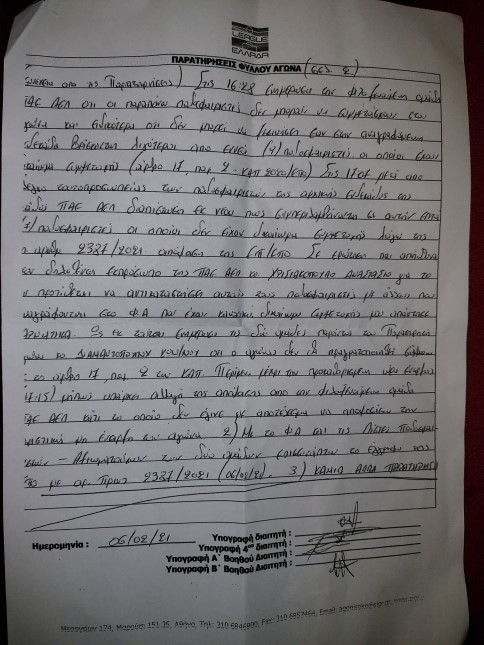 LEAGUE
ΕΛΛΑΔΑ
ΠΑΡΑΤΗΡΗΣΕΙΣ ΦΥΛΛΟΥ ΑΓΩΝΑ (σελ 2)
Συνέχεια από τις Παρατηρήσεις) Στις 16:28 ενημέρωσα την φιλοξενούμενη ομάδα
ΠΑΕ ΑΕΛ ότι οι παραπάνω ποδοσφαιριστές δεν μπορούν να συμμετάσχουν στον
αγώνα και ότι δεν μπορεί να
βρίσκονται λιγότεροι από επτά (7) ποδοσφαιριστές οι οποίοι έχουν
δικαίωμα συμμετοχής (άρθρο 17, παρ 2 - ΚΑΠ 2020/ΕΠΟ) Στις 17:05 μετά από
έλεγχο αυτοπροσωπείας των ποδοσφαιριστών της αρχικής ενδεκάδας της
ομάδος ΠΑΕ ΑΕΛ διαπίστωσα εκ νέου πως συμπεριλαμβάνονται σε αυτήν επτά
(7) ποδοσφαιριστές οι οποίοι δεν είχαν δικαίωμα συμμετοχής λόγω της
αριθμ 2337/2021 απόφασης της ΕΠ/ΕΠΟ Σε ερώτηση που απηύθυνα
στον εκπρόσωπο της ΠΑΕ ΑΕΛ κο ΧΡΙΣΤΑΚΟΠΟΥΛΟ ΑΝΑΣΤΑΣΙΟ για το
αν προτίθεται να αντικαταστήσει αυτούς τους ποδοσφαιριστές με άλλους που
αναγράφονται στο ΦΑ και έχουν κανονικά δικαίωμα συμμετοχής μου απάντησε
ΑΡΝΗΤΙΚΑ. Ως εκ τούτου ενημέρωσα τις δύο ομάδες παρουσία του Παρατηρητή
αγώνα κο ΔΙΑΜΑΝΤΟΠΟΥΛΟΥ ότι ο αγώνας δεν θα πραγματοποιηθεί σύμφωνα
με το άρθρο 17, παρ 2 του ΚΑΠ. Περίμενα μέχρι την προκαθορισμένη ώρα έναρξης
17:15) μήπως υπάρξει αλλαγή της απόφασης από την φιλοξενούμενη ομάδα
ΠΑΕ ΑΕΛ κάτι το οποίο δεν έγινε με αποτέλεσμα να αποφασίσω την
οριστική μη έναρξη του αγώνα 2) Με το ΦΑ και τις Λίστες Ποδοσφαι-
ριστών - Αξιωματούχων των δύο ομάδων επισυνάπτω το έγγραφο της
ΕΠΟ με αρ. Πρωτ 2337/2021 (06/02/21). 3) ΚΑΜΙΑ ΑΛΛΗ ΠΑΡΑΤΗΡΗΣΗ
Ημερομηνία : 06/02/21
Υπογραφή διαιτητή :
Υπογραφή 4ου διαιτητή :
Υπογραφή Α΄ Βοηθού Διαιτητή :
Υπογραφή Β΄ Βοηθού Διαιτητή :
Μεσογείων 174, Μαρούσι 151 25, Αθήνα, Τηλ: 210 6846900, Fax: 210 6857464, Email: